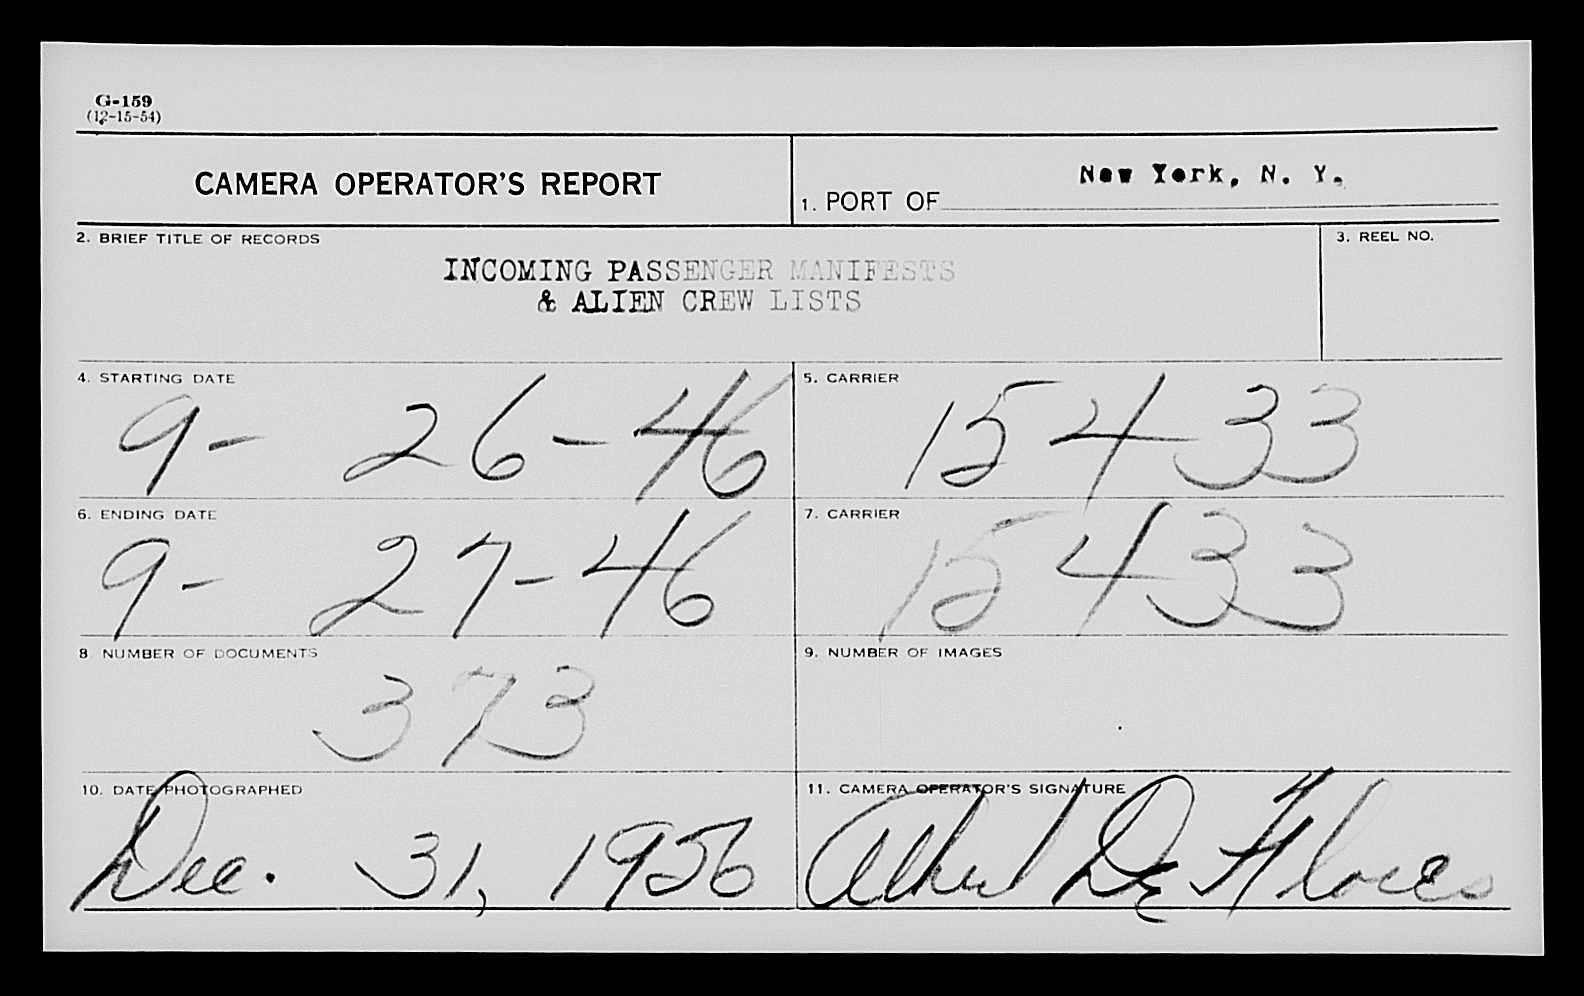 G-159
(12-15-54)
CAMERA OPERATOR'S REPORT
1. PORT OF New York, N. Y.
2. BRIEF TITLE OF RECORDS
INCOMING PASSENGER MANIFESTS
& ALIEN CREW LISTS
3. REEL NO.
4. STARTING DATE
9- 26-46
5. CARRIER
15433
6. ENDING DATE
9- 27-46
7. CARRIER
15433
8. NUMBER OF DOCUMENTS
373
9. NUMBER OF IMAGES
10. DATE PHOTOGRAPHED
Dec. 31, 1956
11. CAMERA OPERATOR'S SIGNATURE
Albert De Flores